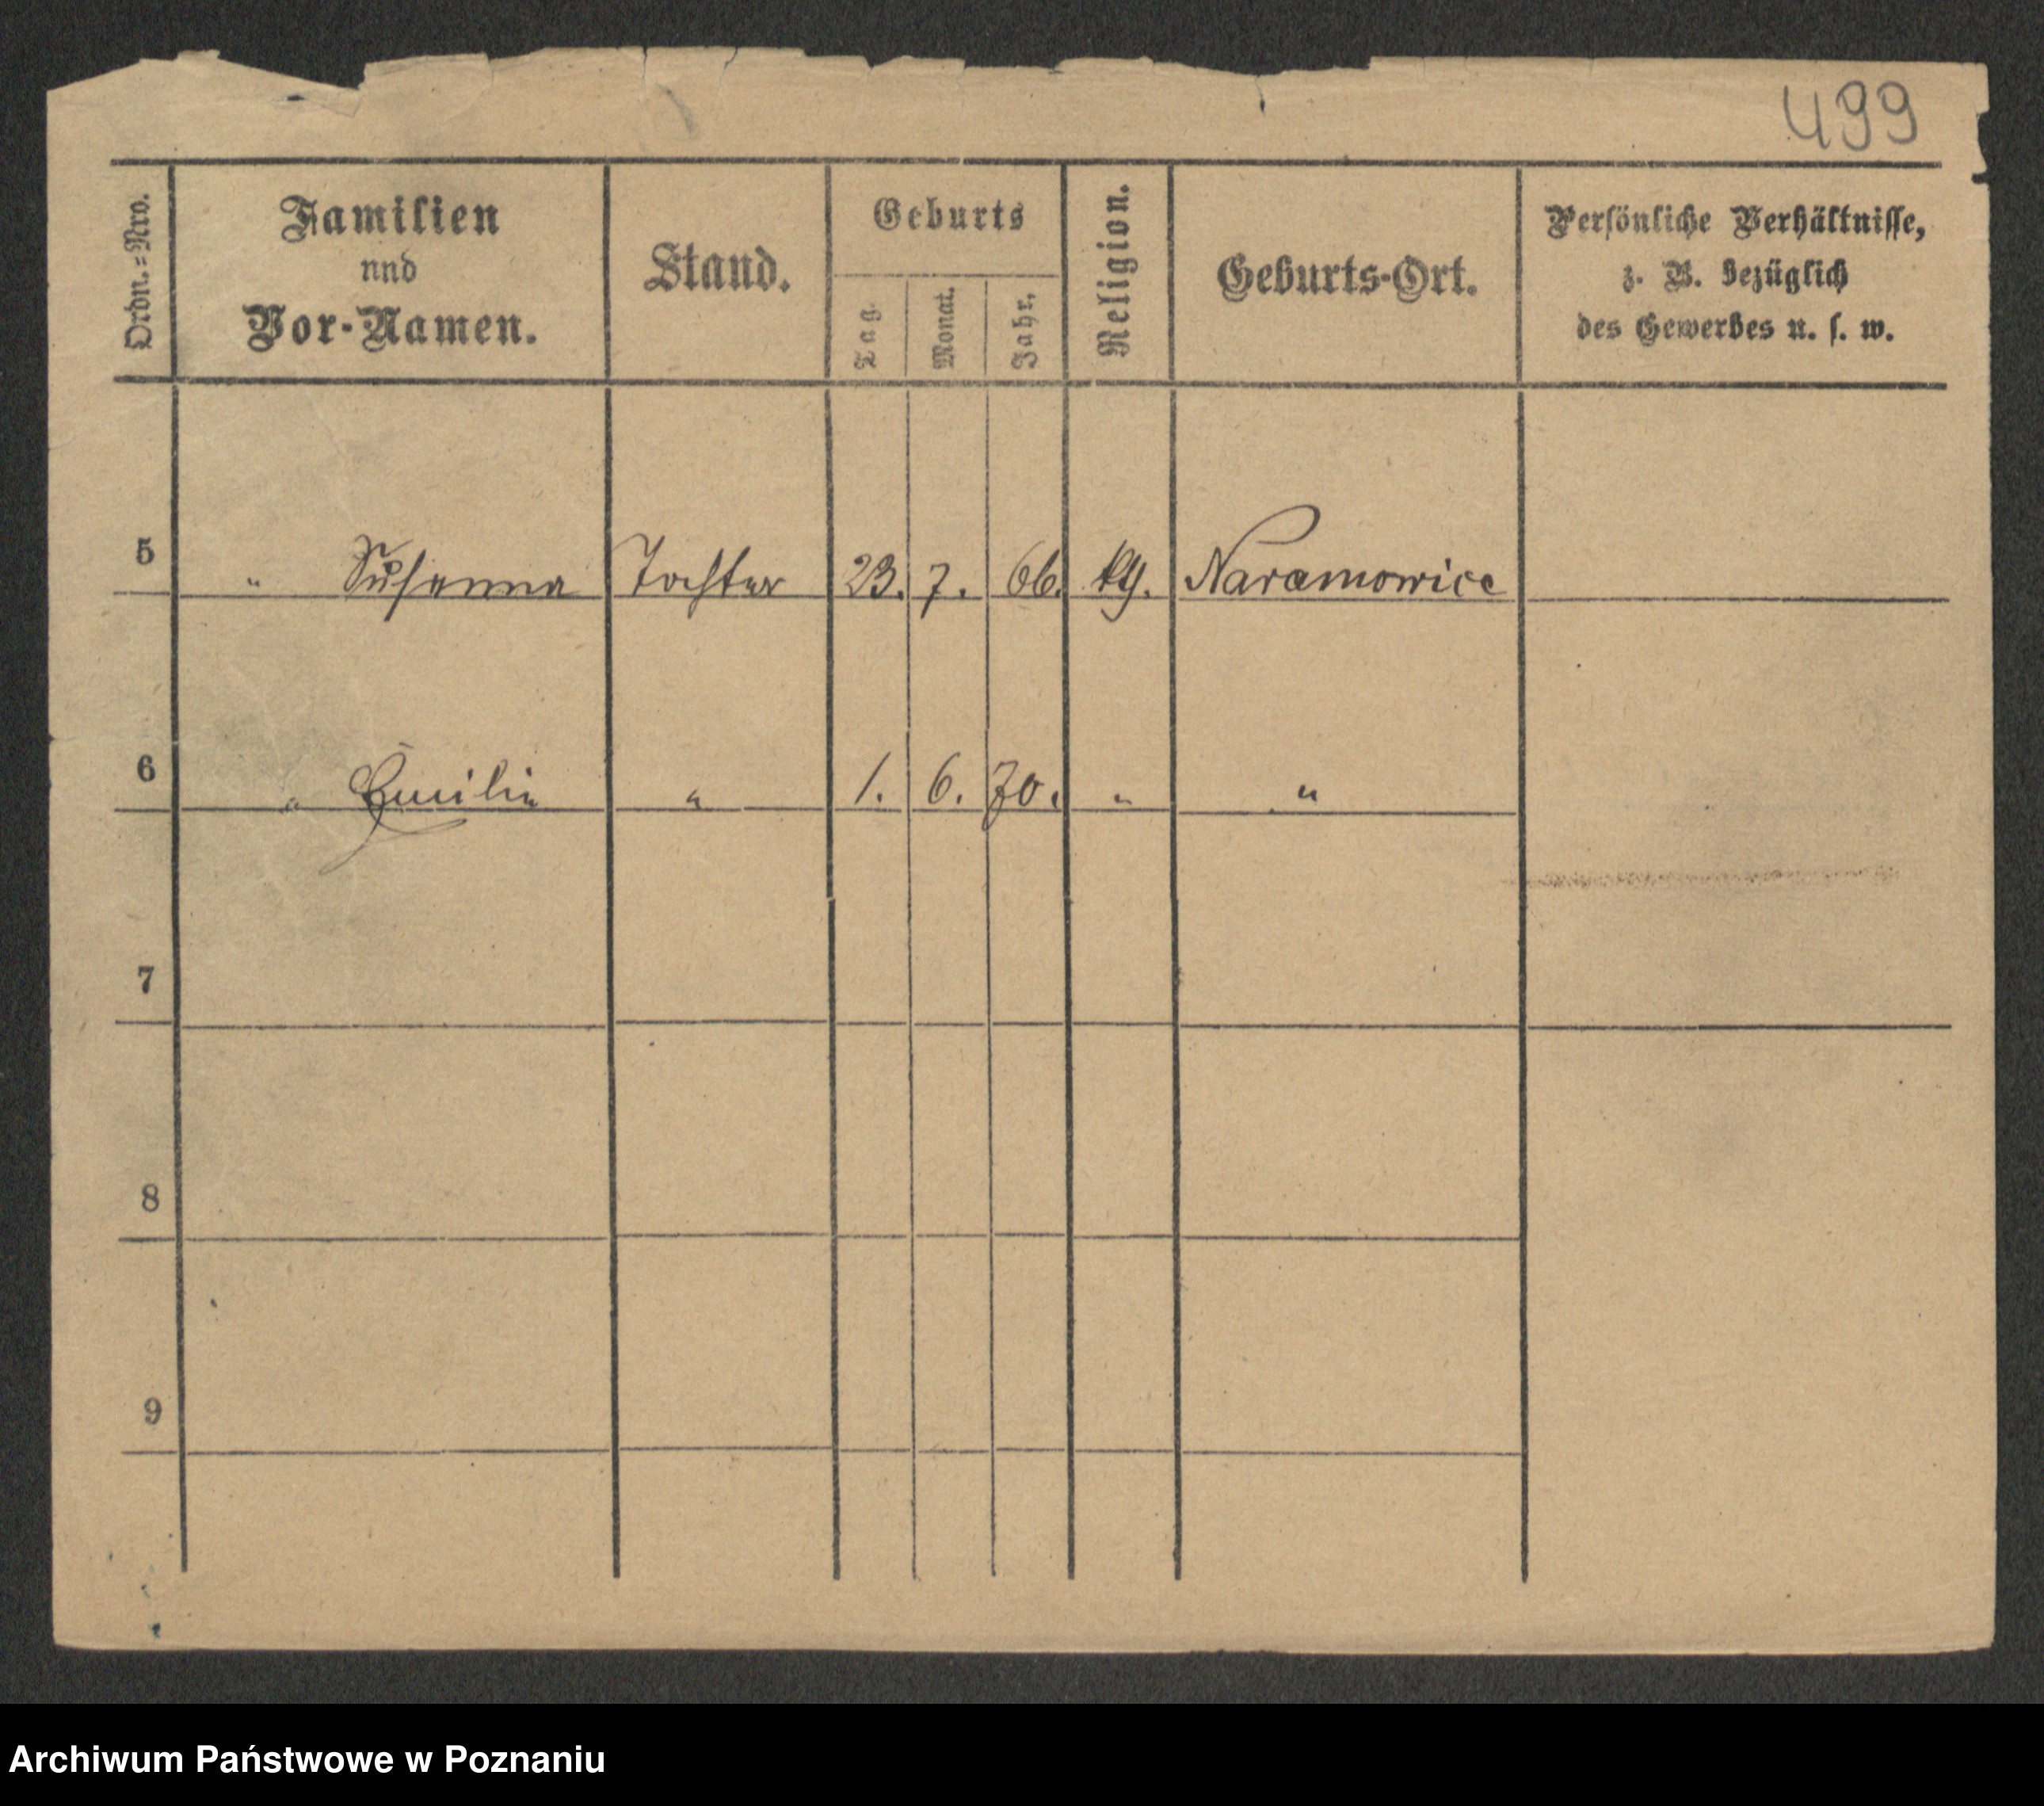 499
Ordn.=Nro.
Familien
und
Vor-Namen.
Stand.
Geburts
Tag.
Monat.
Jahr.
Religion.
Geburts-Ort.
Persönliche Verhältnisse,
z. B. bezüglich
des Gewerbes u. s. w.
5 " Susanna Tochter 23. 7. 66. Naramowice
6 " Emilie " 1. 6. 70. " "
7
8
9
Archiwum Państwowe w Poznaniu